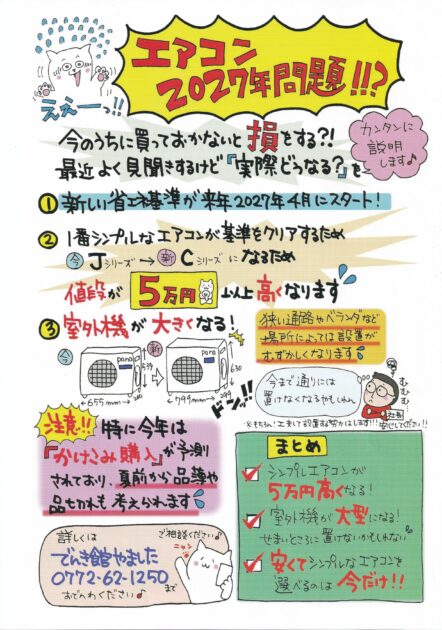 エアコン
2027年問題!!!?
ええーっ!!
今のうちに買っておかないと損をする?!
最近よく見聞きするけど『実際どうなる?』を
カンタンに
説明
します♪
① 新しい省エネ基準が来年2027年4月にスタート!
② 1番シンプルなエアコンが基準をクリアするため
今 Jシリーズ → 新 Cシリーズ になるため
値段が 5万円 以上 高くなります
③ 室外機が大きくなる!
狭い通路やベランダなど
場所によっては設置が
むずかしくなります
今 pana 539 655mm
新 pana 630 799mm 299
ドンッ!!
今まで通りには
置けなくなるかもしれん
むむむ
社長
注意!! 特に今年は
『かけこみ購入』が予測
されており、夏前から品薄や
品切れも考えられます
まとめ
シンプルエアコンが
5万円高くなる!
室外機が大型になる!
せまいところに置けないかもしれない
安くてシンプルなエアコンを
選べるのは今だけ!!
詳しくは
ご相談ください♪
ニャン
でんき館やました
0772-62-1250
まで
おでんわください♪